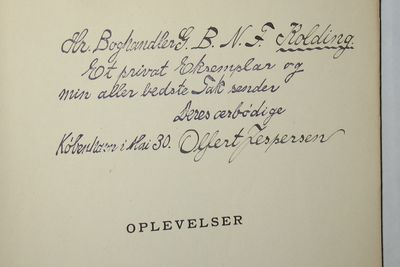 Hr. Boghandler G. B. N. F. Kolding.
Et privat Eksemplar og
min aller bedste Tak sender
Deres ærbödige
København i Mai 30. Olfert Jespersen
OPLEVELSER